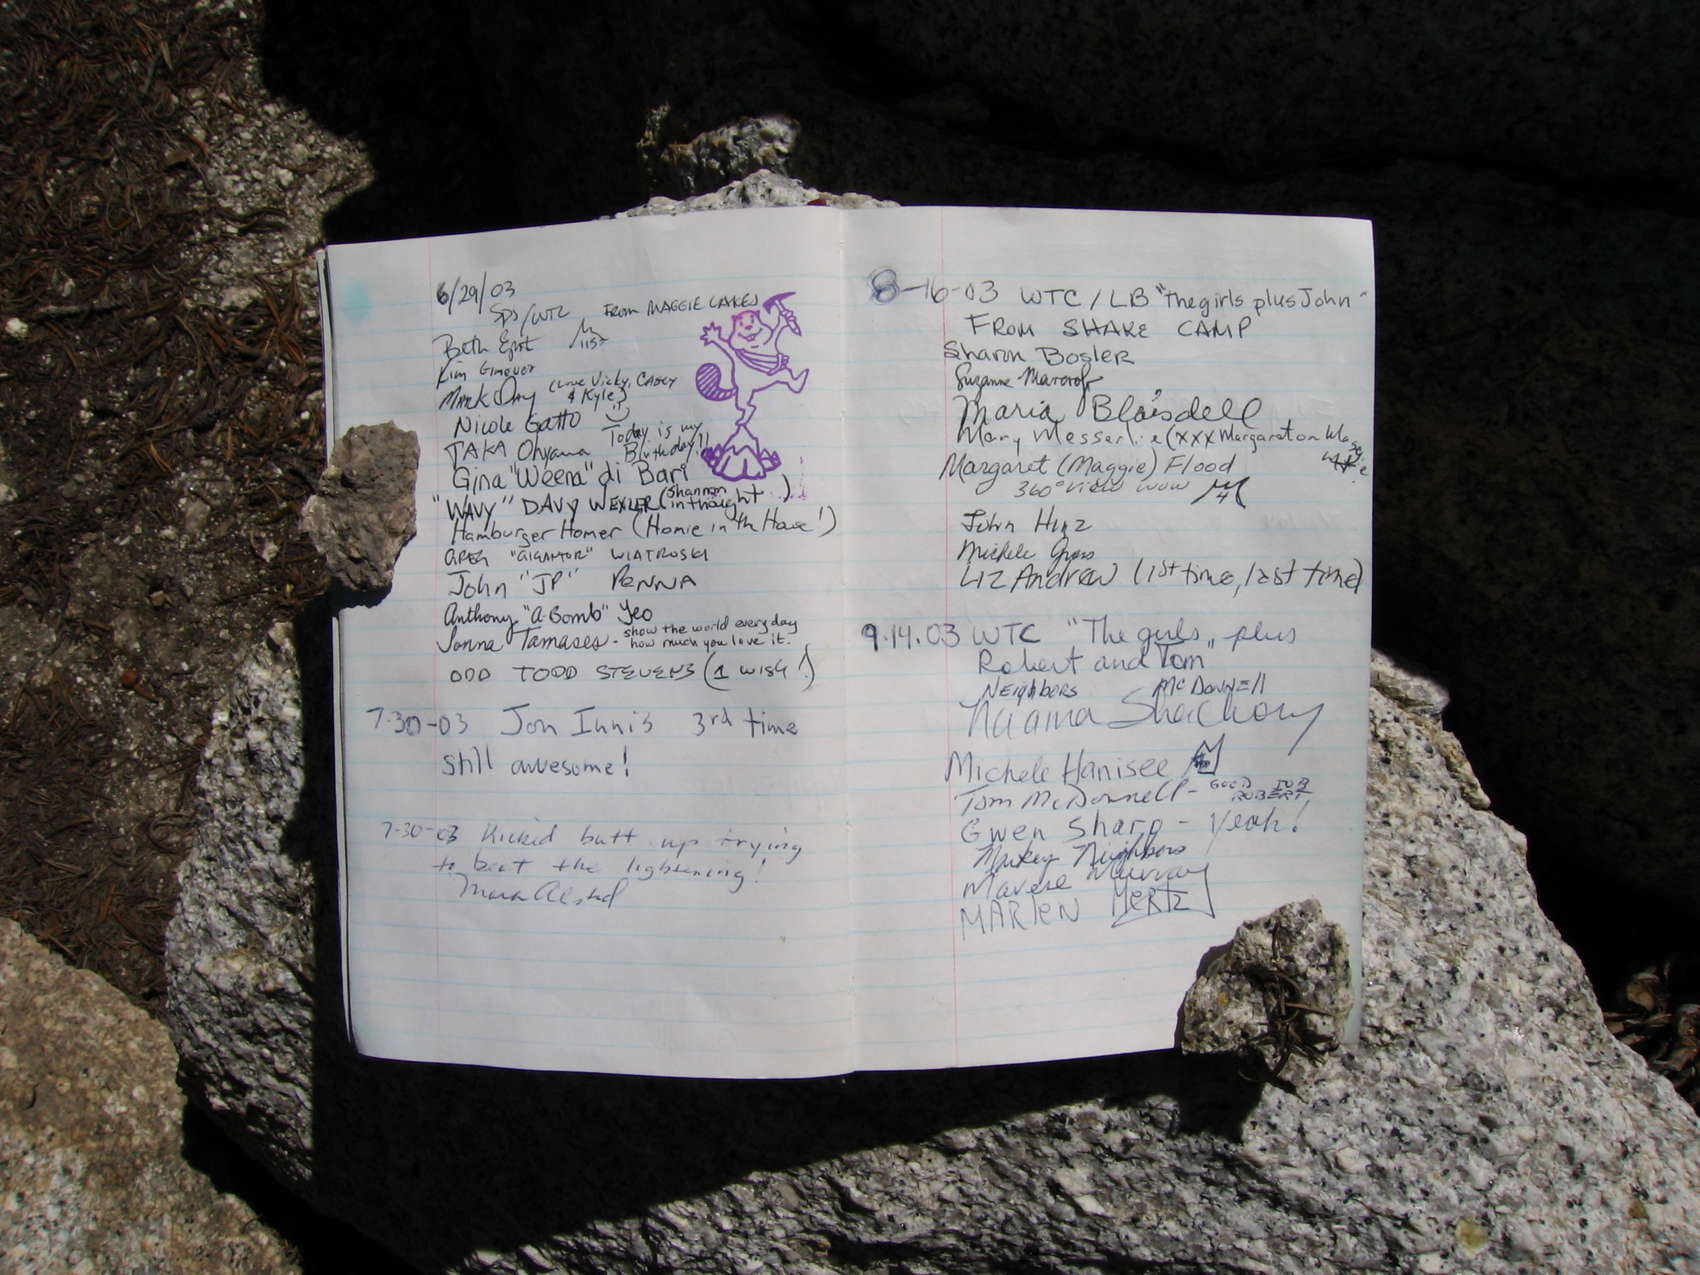 6/29/03
SPS/WTC FROM MAGGIE LAKES
Beth Epst
Kim Gimover
Mark Day (Love Vicky, Casey
& Kyle)
Nicole Gatto
TAKA Ohyama Today is my
Birthday!!
Gina "Weena" di Bari
"WAVY" DAVY WEXLER (Shannon
in thought)
Hamburger Homer (Homie in the House!)
GREG "GIGANTOR" WIATROSKI
John "JP" PENNA
Anthony "A-Bomb" Yeo
Janna Tamases - show the world every day
how much you love it.
ODD TODD STEVENS (1 WISH!)
7-30-03 Jon Innis 3rd time
Still awesome!
7-30-03 Kicked butt up trying
to beat the lightening!
8-16-03 WTC/LB "The girls plus John"
FROM SHAKE CAMP
Sharon Bosler
Suzanne
Maria Blaisdell
Mary Messerlie (xxx Margaret on
Margaret (Maggie) Flood
360° view wow
John Hinz
Michele Gross
LIZ ANDREW (1st time, last time)
9.14.03 WTC "The girls" plus
Robert and Tom"
Neighbors McDonnell
Naama Shachory
Michele Hanisee
Tom McDonnell - GOOD JOB
ROBERT
Gwen Sharp - Yeah!
Neighbors
Murray
MARTEN HERTZ